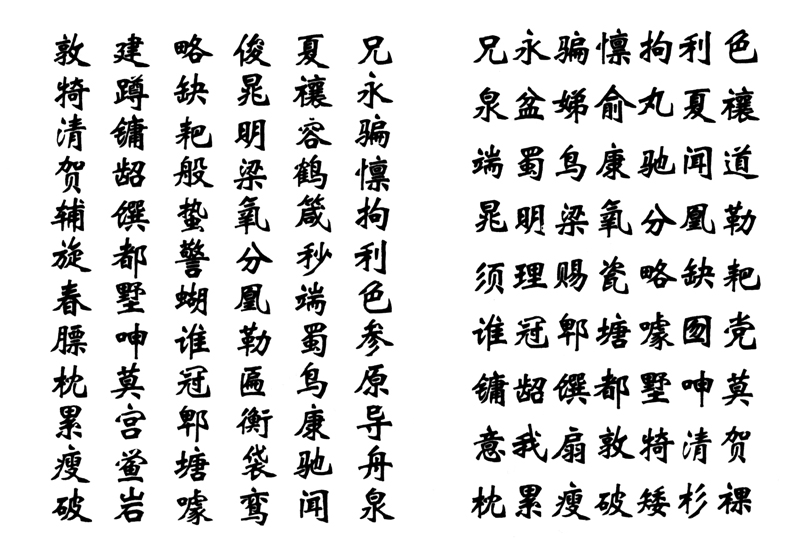 兄永骗懔拘利色参原导舟泉
夏禳容鹤箴秒端蜀鸟康驰闻
俊晁明梁氧分凰勒匾衡袋鸾
略缺耙般蛰警蝴谁冠郫塘噱
建蹲镛龆馔都墅呻莫宫鲎岩
敦犄清贺辅旋春膘枕累瘦破
兄永骗懔拘利色
泉盆娣俞丸夏禳
端蜀鸟康驰闻道
晁明梁氧分凰勒
须理赐瓷略缺耙
谁冠郫塘噱党
镛龆馔都墅呻莫
意我扇敦犄清贺
枕累瘦破矮杉裸